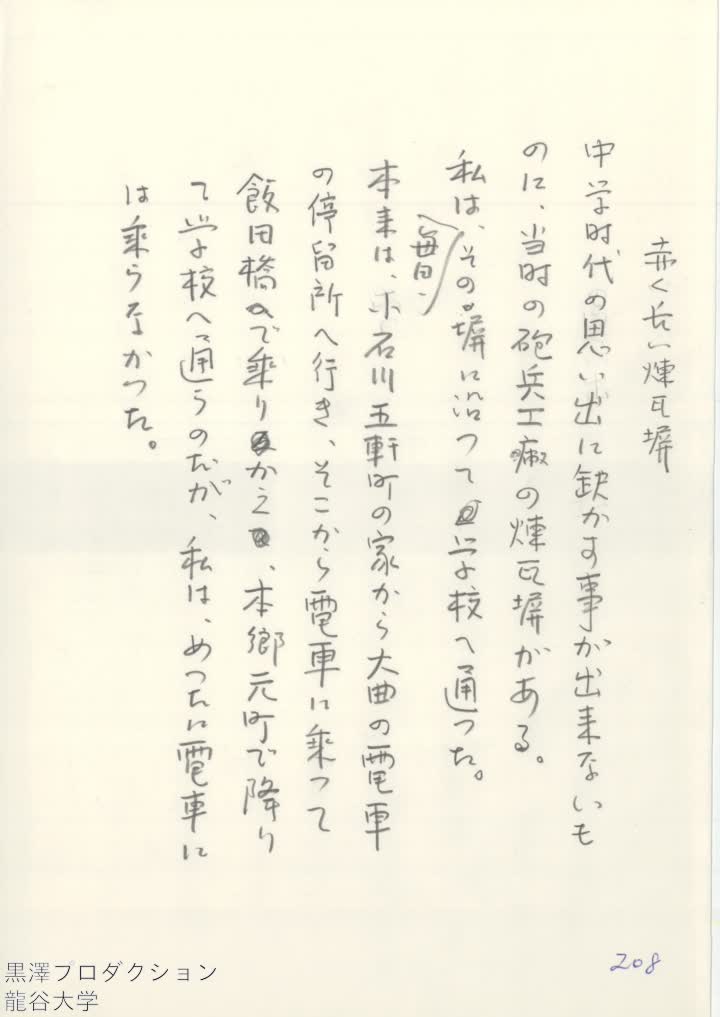 赤く長い煉瓦塀
中学時代の思い出に欠かす事が出来ないも
のに、当時の砲兵工廠の煉瓦塀がある。
私は、毎日、その塀に沿つて学校へ通つた。
本来は、小石川五軒町の家から大曲の電車
の停留所へ行き、そこから電車に乗つて
飯田橋で乗りかえ、本郷元町で降り
て学校へ通うのだが、私は、めつたに電車に
は乗らなかつた。
208
黒澤プロダクション
龍谷大学